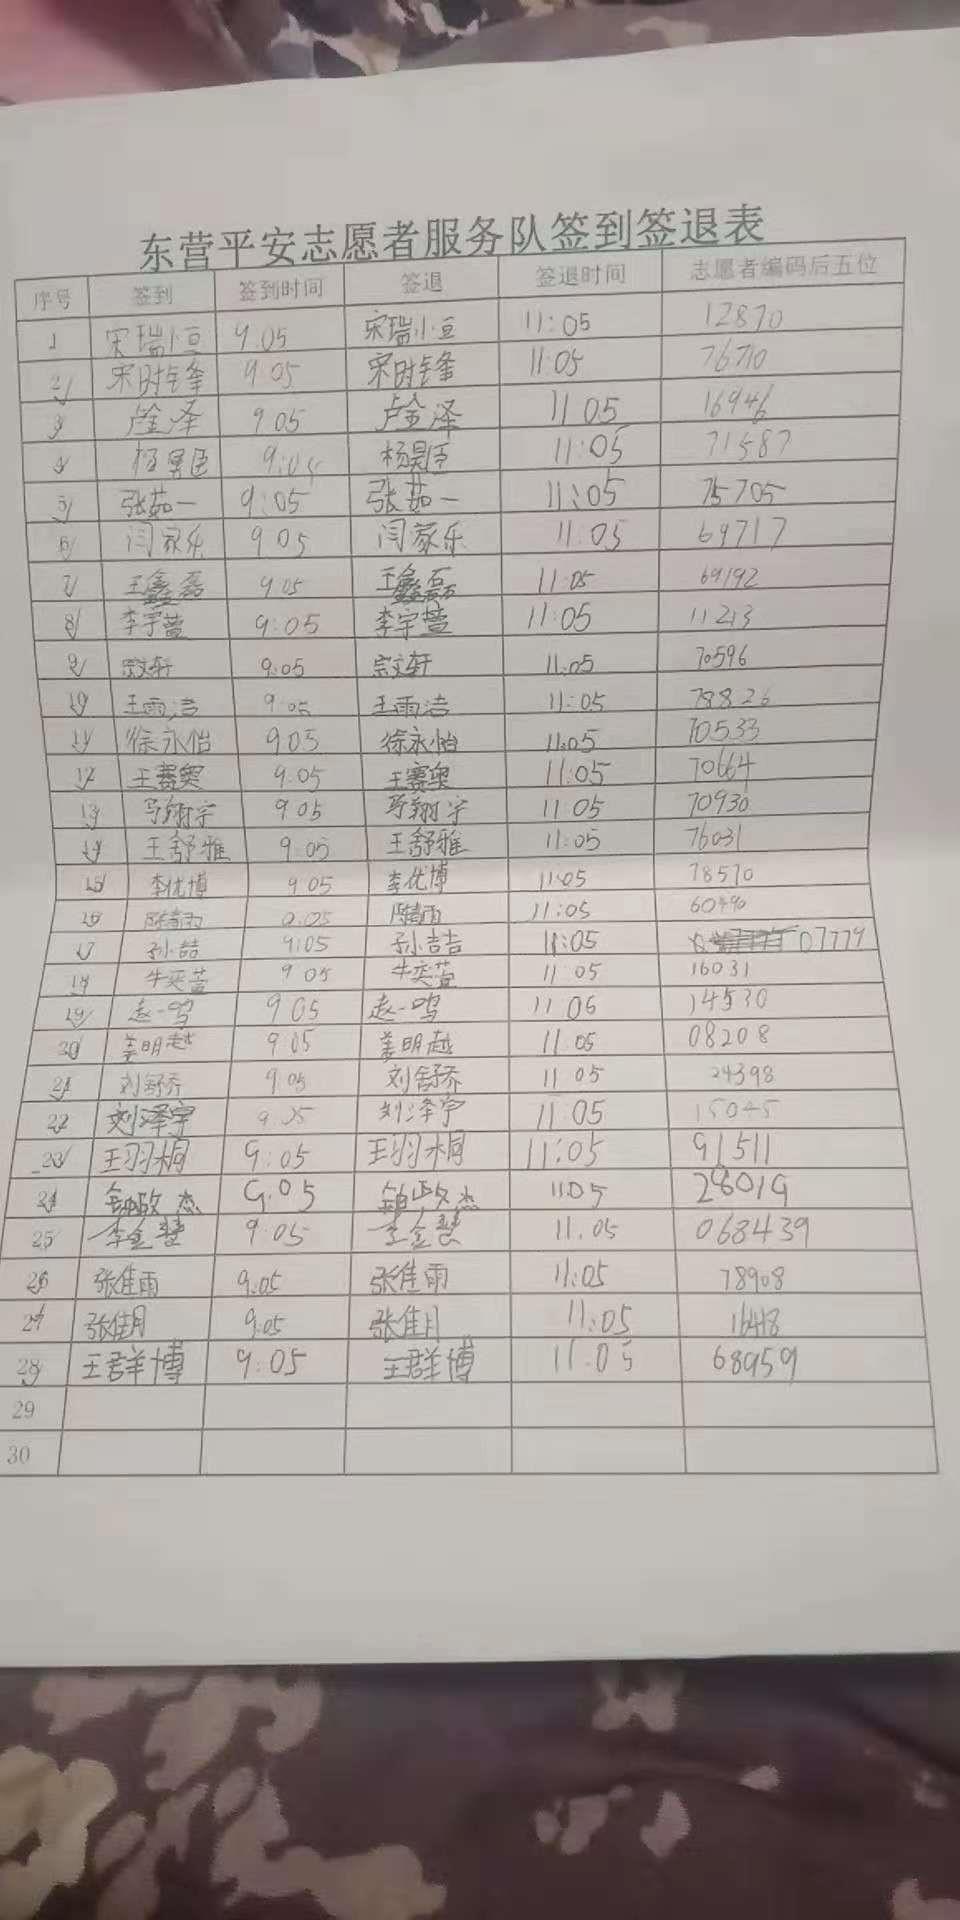 东营平安志愿者服务队签到签退表
序号 签到 签到时间 签退 签退时间 志愿者编码后五位
1 宋瑞小豆 9.05 宋瑞小豆 11:05 12870
2 宋时锋 9:05 宋时锋 11:05 76710
3 卢金泽 9.05 卢金泽 11 05 16946
4 杨昊臣 9:05 杨昊臣 11:05 71587
5 张茹一 9:05 张茹一 11:05 75705
6 闫家乐 9 05 闫家乐 11:05 69717
7 王鑫磊 9.05 王鑫磊 11:05 69192
8 李宇萱 9:05 李宇萱 11:05 11213
9 宗文轩 9.05 宗文轩 11:05 70596
10 王雨洁 9:05 王雨洁 11:05 78826
11 徐永怡 9.05 徐永怡 11.05 70533
12 王赛奥 9.05 王赛奥 11:05 70664
13 马翔宇 9.05 马翔宇 11 05 70930
14 王舒雅 9.05 王舒雅 11:05 76031
15 李优博 9.05 李优博 11:05 78570
16 9.05 11:05 60490
17 孙喆 9:05 孙喆 11:05 07779
18 牛奕萱 9 05 牛奕萱 11 05 16031
19 赵一鸣 9 05 赵一鸣 11 05 14530
20 姜明越 9.05 姜明越 11:05 08208
21 刘舒乔 9.05 刘舒乔 11 05 24398
22 刘泽宇 9.05 刘泽宇 11:05 15045
23 王羽桐 9:05 王羽桐 11:05 91511
24 9.05 1105 28019
25 李金慧 9:05 李金慧 11.05 068439
26 张佳雨 9:05 张佳雨 11:05 78908
27 张佳月 9:05 张佳月 11:05 16418
28 王群博 9:05 王群博 11:05 68959
29
30